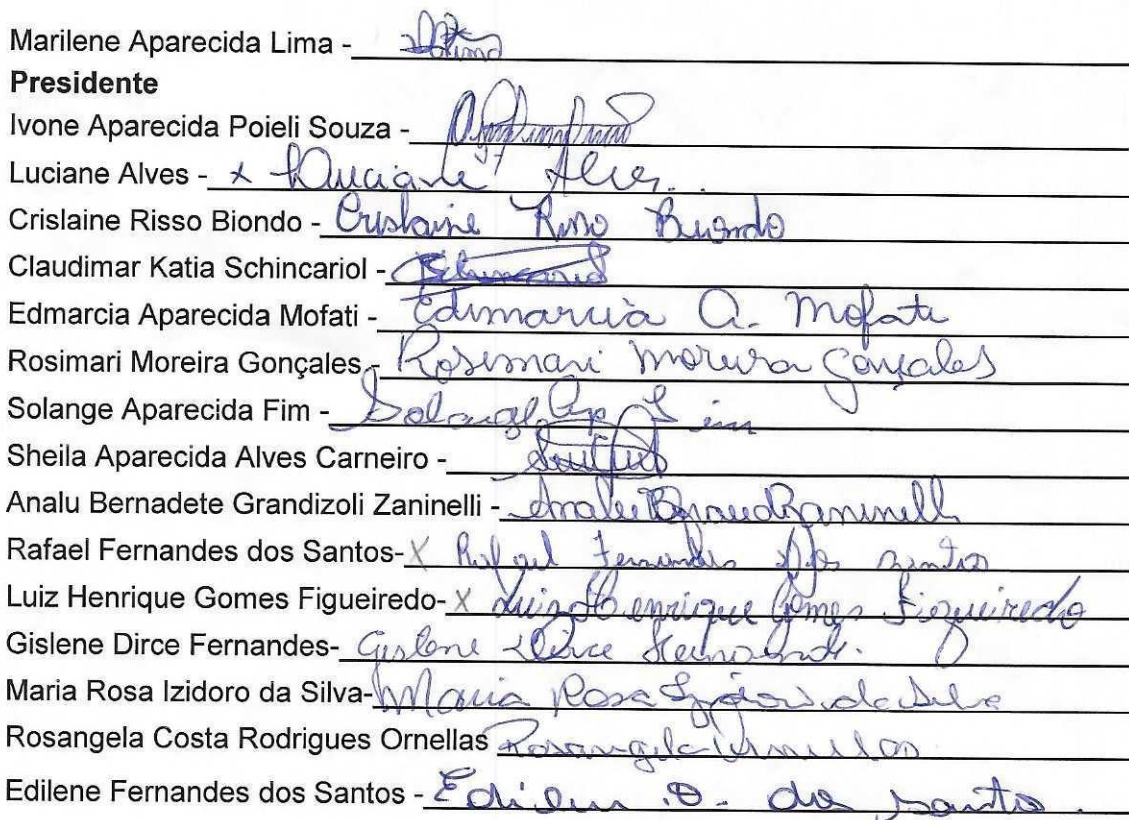 Marilene Aparecida Lima - Lima
Presidente
Ivone Aparecida Poieli Souza -
Luciane Alves - x Luciane Alves.
Crislaine Risso Biondo - Crislaine Risso Biondo
Claudimar Katia Schincariol - Schincariol
Edmarcia Aparecida Mofati - Edimarcia A. Mofati
Rosimari Moreira Gonçales - Rosimari Moreira Gonçales
Solange Aparecida Fim - Solange Ap Fim
Sheila Aparecida Alves Carneiro -
Analu Bernadete Grandizoli Zaninelli - Analu Zaninelli
Rafael Fernandes dos Santos- X Rafael Fernandes dos santos
Luiz Henrique Gomes Figueiredo- X Luiz Henrique Gomes Figueiredo
Gislene Dirce Fernandes- Gislene Dirce Fernandes.
Maria Rosa Izidoro da Silva- Maria Rosa Izidoro da Silva
Rosangela Costa Rodrigues Ornellas Rosangela Ornellas
Edilene Fernandes dos Santos - Edilene . dos santos.